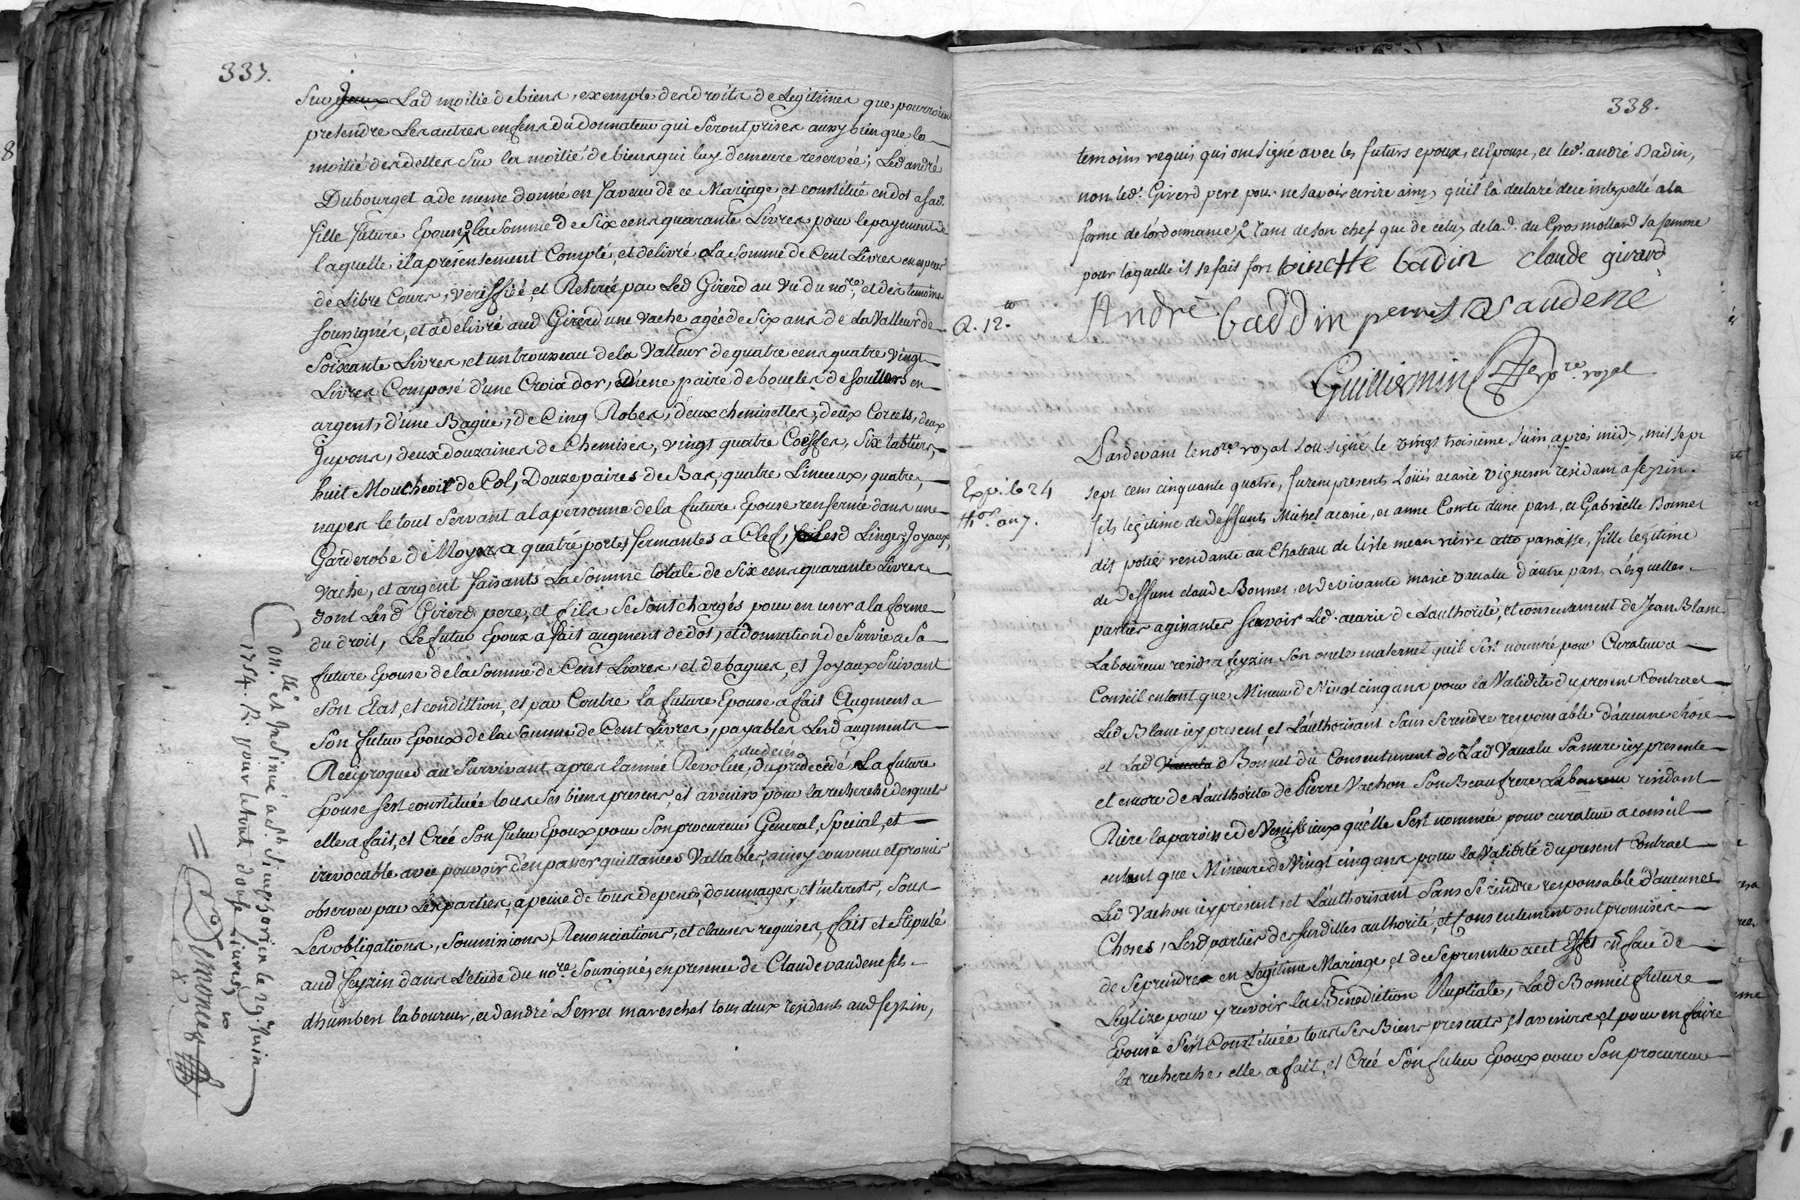 337.
Sur Lad moitié de biens, exempte des droits de Legitimes que pourroient
pretendre Les autres enfens du donnateur qui seront prises aussy bien que la
moitié des dettes Sur la moitié de biens qui luy demeure reservée; Led andré
Dubourget a de meme donné en faveur de ce Mariage et constitué en dot a sad.
fille future Epouse la somme de Six cens quarante Livres pour le payement de
laquelle il a presentement Compté, et delivré La somme de Cent Livres en especes
de Libre Cours, veriffiée, et Retirée par Led Girerd au vu du nore. et des temoins
soussignés, et a delivré aud Girerd une vache agée de Six ans de La Valleur de
Soixante Livres, et un trousseau de la Valleur de quatre cens quatre vingt
Livres Composé d'une Croix d'or, d'une paire de boucles de soulliers en
argent, d'une Bague, de Cinq Robes, deux chemisettes, deux Corcets, deux
Jupons, deux douzaines de Chemises, vingt quatre Coeffes, six tabliers,
huit Mouchoirs de Col, Douze paires de Bas, quatre Linceux, quatre
napes le tout Servant a la personne de la future Epouse renfermé dans une
Garderobe de Noyer a quatre portes fermantes a Clef, Lesd Linges, Joyaux,
Vache, et argent faisants La Somme totale de Six cens quarante Livres
dont Lesd Girerd pere, et fils Se Sont chargés pour en user a la forme
du droit, Le futur Epoux a fait augment de dot, et donnation de Survie a Sa
future Epouse de la Somme de Cent Livres, et de bagues, et Joyaux Suivant
Son Etat, et condition, et par Contre la future Epouse a fait Augment a
Son futur Epoux de la Somme de Cent Livres, payables Lesd augments
Reciproques au Survivant apres l'année Revolue du deces du predecedé, La future
Epouse s'est constituée tous Ses biens presens, et avenirs pour la recherche desquels
elle a fait, et Créé Son futur Epoux pour Son procureur General, Special, et
irrevocable avec pouvoir d'en passer quittances Vallables, ainsy convenu et promis
observer par Les parties, a peine de tous depens, dommages, et interests, Sous
Les obligations, Soumissions, Renonciations, et clauses requises, fait et Stipulé
aud feyzin dans L'etude du nore. Soussigné, en presence de Claude vaudene fils
d'humbert laboureur, et d'andré Perret mareschal tous deux residants aud feyzin,
Conllé et Insinué a St. Simphorien le 29e. Juin
1754. R. pour le tout douse Livres
338.
temoins requis qui ont signé avec les futurs epoux, et epouse, et led. andré Badin,
non led. Girerd pere pour ne savoir ecrire ainsy qu'il l'a declaré de ce interpellé a la
forme de l'ordonnance, tant de son chef que de celuy de lad. du Gros mollard sa femme
pour laquelle il se fait fort binette badin claude girard
André baddin perret Vaudene
A. 12.tt
Guilliermin nore. royal
Pardevant le nore. royal soussigné le vingt troisieme Juin apres midy, mil sept
Exp. le 24
sept cens cinquante quatre, furent presents Loüis acarie vigneron residant a feyzin
fils legitime de deffunts Michel acarie, et anne Comte d'une part, et Gabrielle Bonnet
residante au Chateau de L'isle mean riviere, fille legitime
de deffunt claude Bonnet, et de vivante marie vacalu d'autre part, Lesquelles
parties agissantes scavoir Led. acarie de L'authorité, et consentement de Jean Blanc
Laboureur resid a feyzin Son oncle maternel qu'il s'est nommé pour Curateur a
Conseil entant que Mineur de Vingt cinq ans pour la Validité du present Contract
Led Blanc icy present, et L'authorisant Sans Se rendre responsable d'aucune chose
et Lad Bonnet du Consentement de Lad Vacalu Sa mere icy presente
et encore de L'authorité de Pierre Vachon Son Beau frere Laboureur residant
Riere la paroisse de Venissieux qu'elle S'est nommée pour curateur a conseil
entant que Mineure de Vingt cinq ans pour la Validité du present Contract
Led Vachon icy present, et L'authorisant Sans Se rendre responsable d'aucunes
Choses, Lesd parties desdittes authorité, et Consentement ont promises
de Se prendre en Legitime Mariage, et de Se presenter a cet Effet en face de
L'eglise pour y recevoir la Benediction Nuptiale, Lad Bonnet future
Epouse S'est Constituée tous Ses Biens presents, et avenirs, et pour en faire
la recherche elle a fait, et Créé Son futur Epoux pour Son procureur